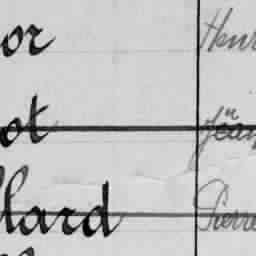 or Henr
ot Jean
llard Pierre